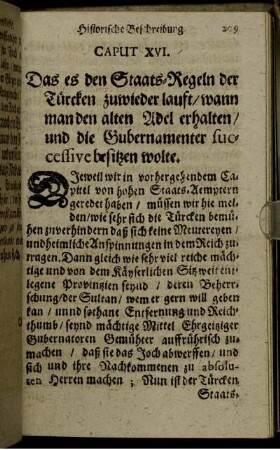 Historische Beschreibung
CAPUT XVI.
Das es den Staats-Regeln der
Türcken zuwieder lauft/wann
man den alten Adel erhalten/
und die Gubernamenter suc-
cessive besitzen wolte.
DIeweil wir in vorhergehendem Ca-
pittel von hohen Staats-Aemptern
geredet haben/ müssen wir hie mel-
den/wie sehr sich die Türcken bemü-
hen zuverhindern daß sich keine Meutereyen/
und heimliche Anspinnungen in dem Reich zu
tragen. Dann gleich wie sehr viel reiche mäch-
tige und von dem Käyserlichen Sitz weit ent-
legene Provinzien seynd / deren Beherr-
schung/der Sultan/ wem er gern will geben
kan/ unnd sothane Entfernung und Reich-
thumb/seynd mächtige Mittel Ehrgeitziger
Gubernatoren Gemüther auffrührisch zu-
machen / daß sie das Joch abwerffen/ und
sich und ihre Nachkommenen zu absolu-
ten Herren machen; Nun ist der Türcken
Staats-